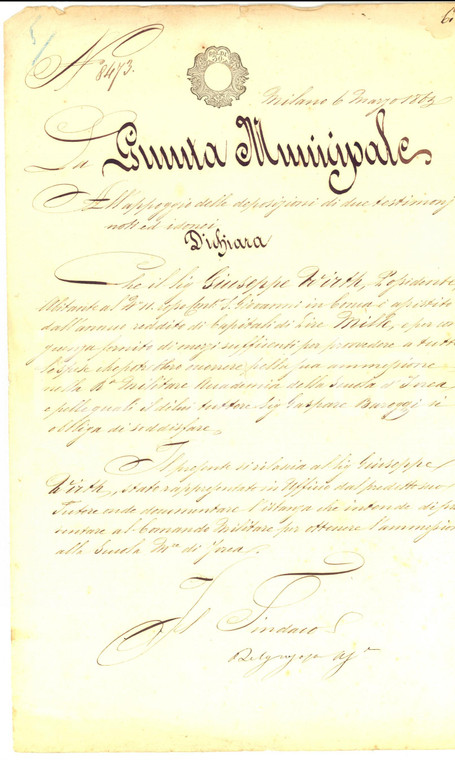 N.° 8473.
Milano 6 Marzo 1863
La Giunta Municipale
All'appoggio delle deposizioni di due testimonj
noti ed idonei
Dichiara
Che il Sig. Giuseppe Wirth, Possidente
Abitante al N. Giovanni in Conca è assistito
dall'annuo reddito di Capitali di Lire Mille, e per con
gunza fornito di mezzi sufficienti per provvedere a tutte
le spese che potrebbero occorrere nella sua ammissione
nella R.a Militare Accademia della Scuola d'Ivrea
e pelle quali il di lui tuttore Sig. Gaspare Bareggi si
obbliga di soddisfare.
Il presente si rilascia al Sig. Giuseppe
Wirth, stato rappresentato in Ufficio dal predetto suo
Tutore onde documentare l'istanza che intende di pre
sentare al Comando Militare per ottenere l'ammissione
alla Scuola M.re di Ivrea.
Il Sindaco